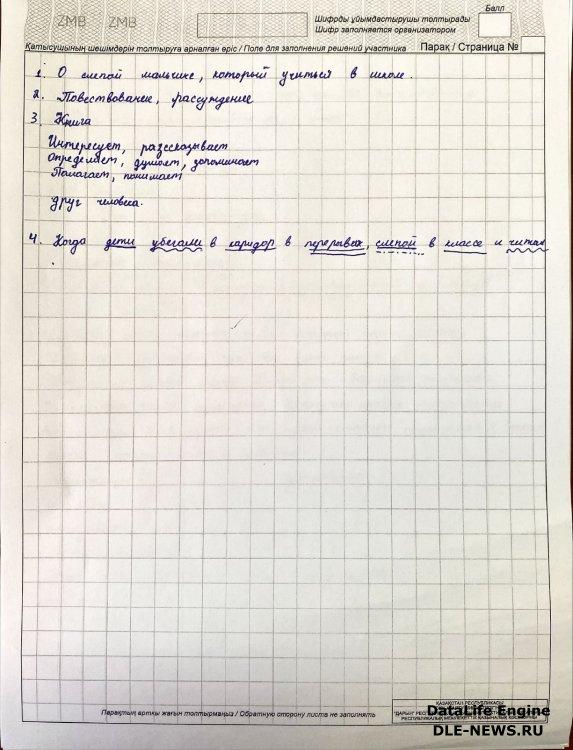 ZMB ZMB
Балл
Шифрды ұйымдастырушы толтырады
Шифр заполняется организатором
Қатысушының шешімдерін толтыруға арналған өріс / Поле для заполнения решений участника Парақ / Страница №
1. О слепой мальчике, который учиться в школе.
2. Повествование, рассуждение
3 Книга
Интересует, разссказывает
Определяет, думает, запоминает
Полагает, понимает
друг человека.
4. Когда дети убегали в каридор в перерывах, слепой в классе и читал
.
Парақтың артқы жағын толтырмаңыз / Обратную сторону листа не заполнять
ҚАЗАҚСТАН РЕСПУБЛИКАСЫ
DataLife Engine
DLE-NEWS.RU